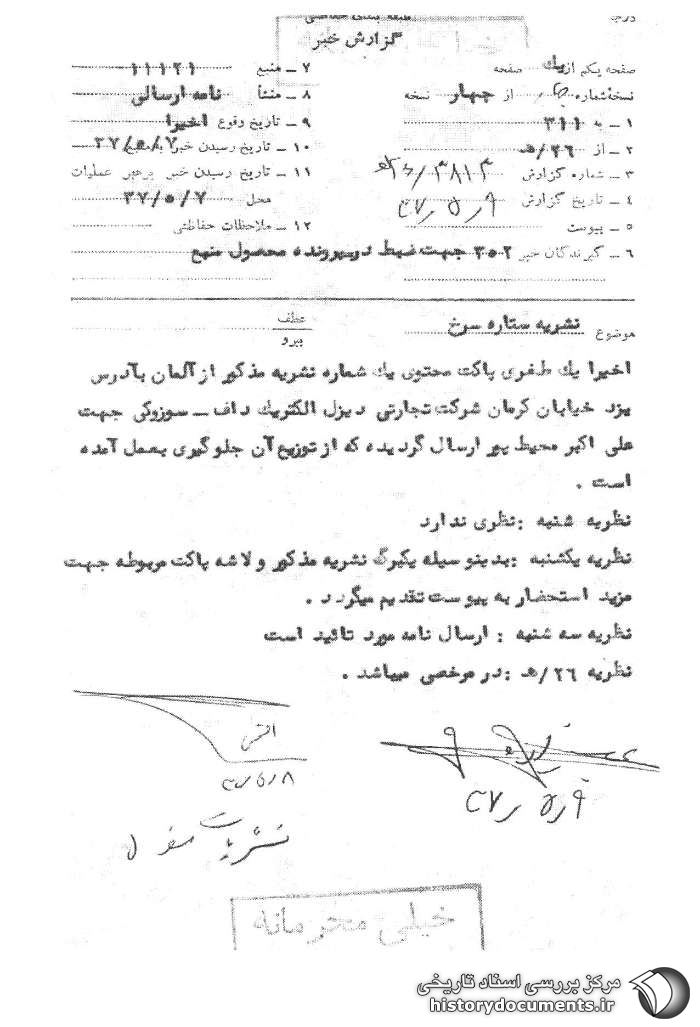 درجه
طبقه بندی حفاظتی
گزارش خبر
صفحه یکم از یک صفحه
نسخه شماره از چهار نسخه
۱ ــ به ۳۱۱
۲ ــ از ۲۶/هـ
۳ ــ شماره گزارش ۳۸۱۳/۲۶هـ
۴ ــ تاریخ گزارش ۳۷/۵/۹
۵ ــ پیوست
۶ ــ گیرندگان خبر ۳۵۲ جهت ضبط در پرونده محصول منبع
۷ ــ منبع ۱۱۱۲۱
۸ ــ منشأ نامه ارسالی
۹ ــ تاریخ وقوع اخیرا
۱۰ ــ تاریخ رسیدن خبر به منبع ۳۷/۵/۷
۱۱ ــ تاریخ رسیدن خبر برهبر عملیات
محل ۳۷/۵/۷
۱۲ ــ ملاحظات حفاظتی
موضوع نشریه ستاره سرخ
عطف
پیرو
اخیرا یك طغری پاکت محتوی یك شماره نشریه مذکور از آلمان بآدرس
یزد خیابان کرمان شرکت تجارتی دیزل الکتریك داف ــ سوزوکی جهت
علی اکبر محیط پور ارسال گردیده که از توزیع آن جلوگیری بعمل آمده
است .
نظریه شنبه : نظری ندارد
نظریه یکشنبه : بدینوسیله یکبرگ نشریه مذکور و لاشه پاکت مربوطه جهت
مزید استحضار به پیوست تقدیم میگردد .
نظریه سه شنبه : ارسال نامه مورد تائید است
نظریه ۲۶/هـ : در مرخصی میباشد .
۳۷/۵/۹
نشریات
خیلی محرمانه
مرکز بررسی اسناد تاریخی
historydocuments.ir